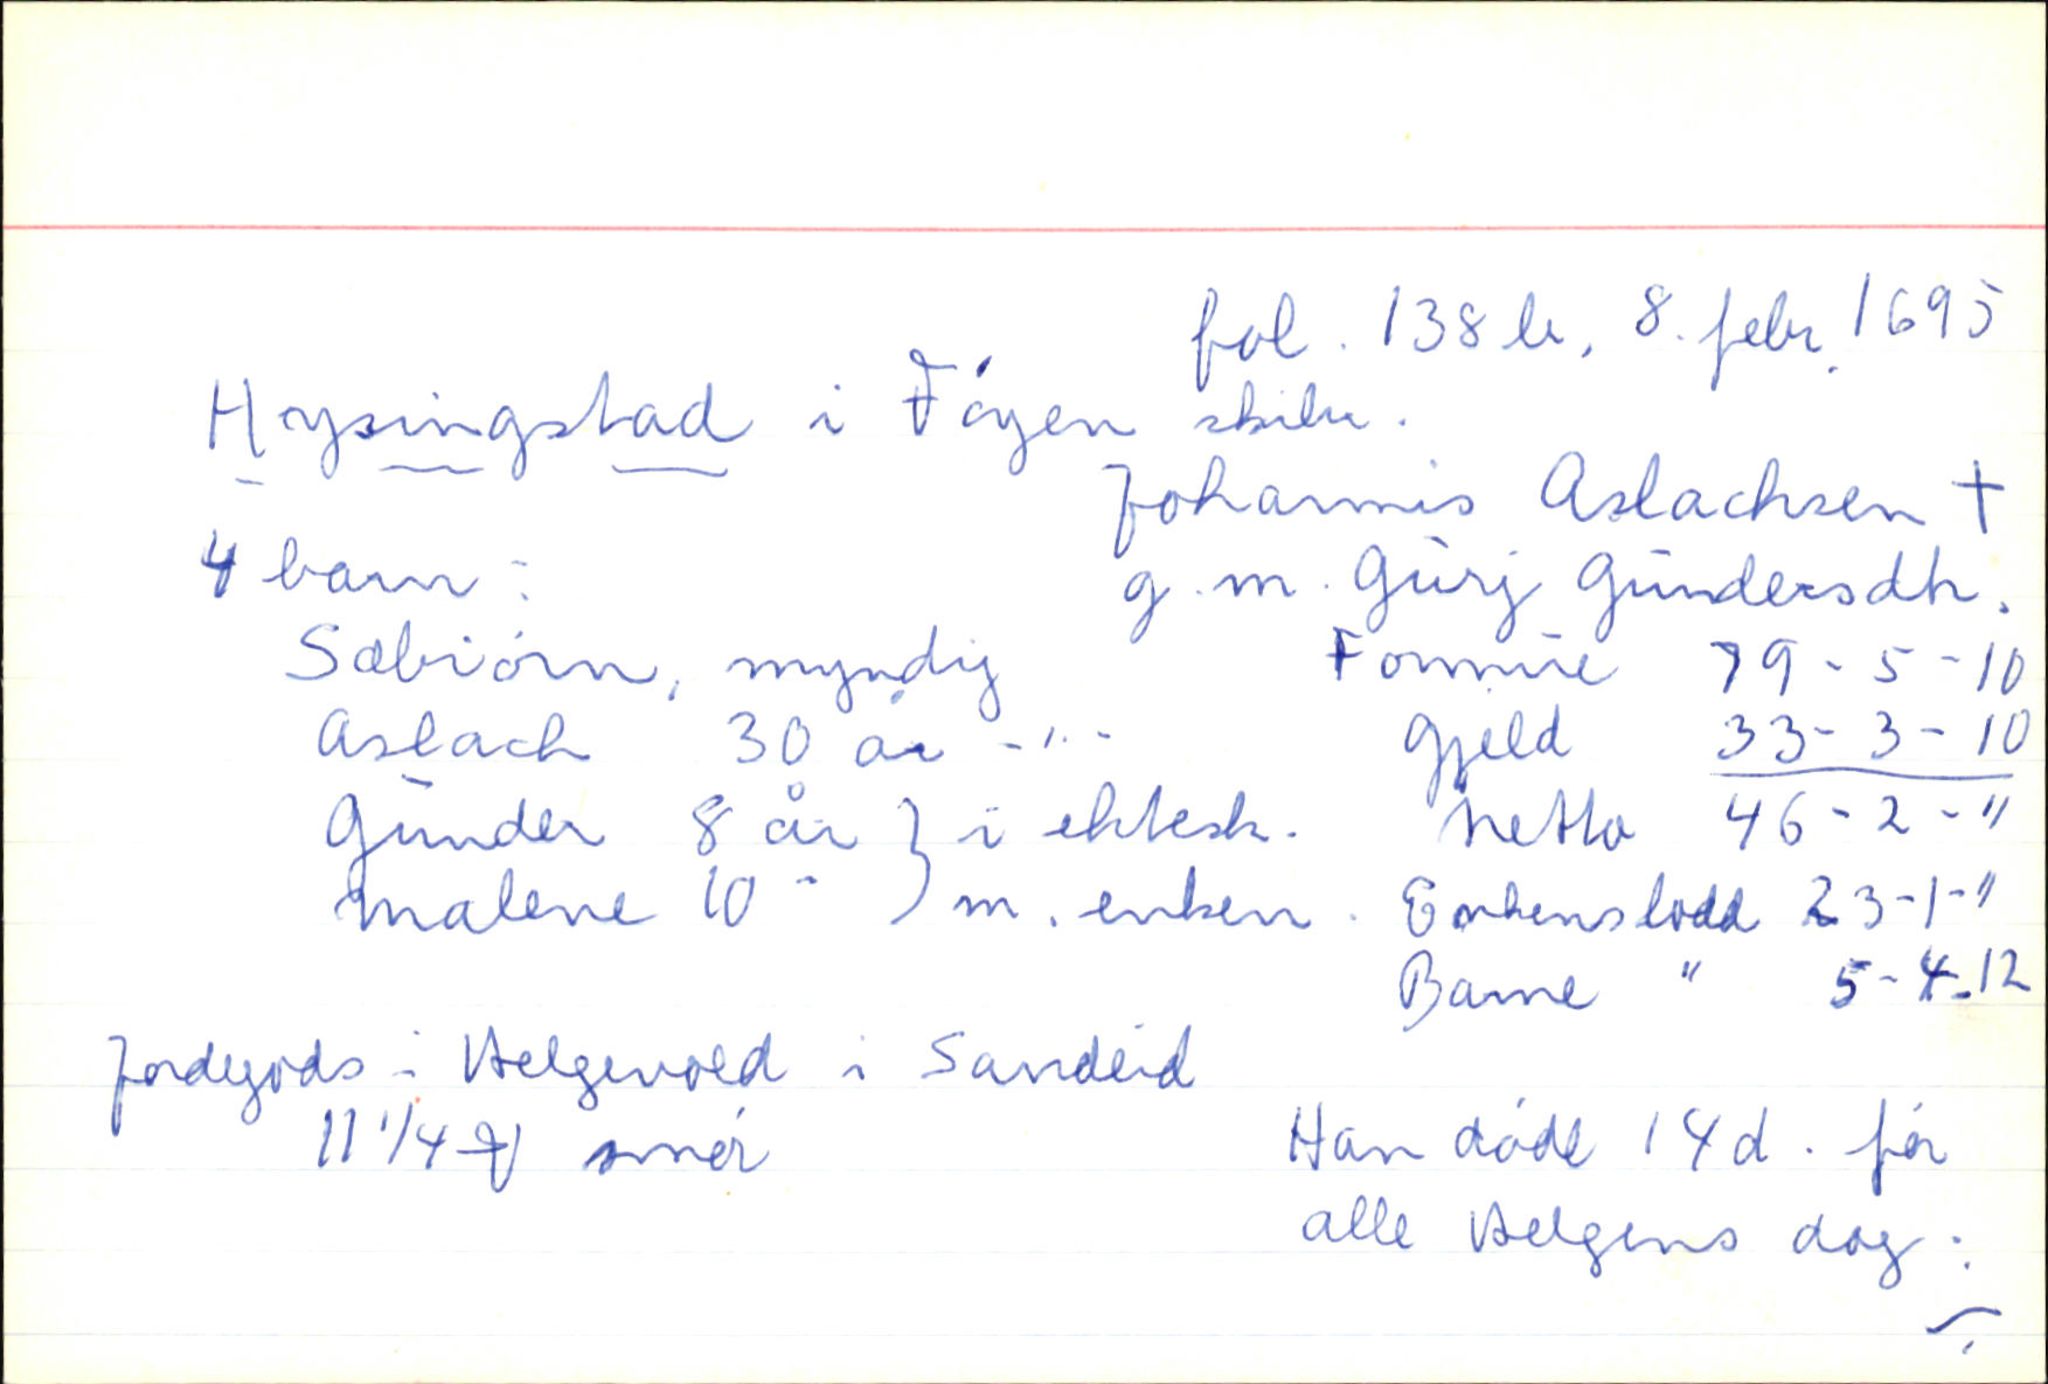 fol. 138 b, 8. febr. 1695
Hysingstad i Føyen skibr.
Johannis Aslachsen †
4 barn: g. m. Gurj Gundersdtr.
Sæbiørn, myndig Formue 79-5-10
Aslach 30 år -"- Gjeld 33-3-10
Gunder 8 år } i ektesk. Netto 46-2-"
Malene 10 " } m. enken. Enkens lodd 23-1-"
Barne " 5-4-12
Jordegods i Helgevold i Sandeid
11 1/4 ℔ smør Han døde 14 d. før
alle Helgens dag.